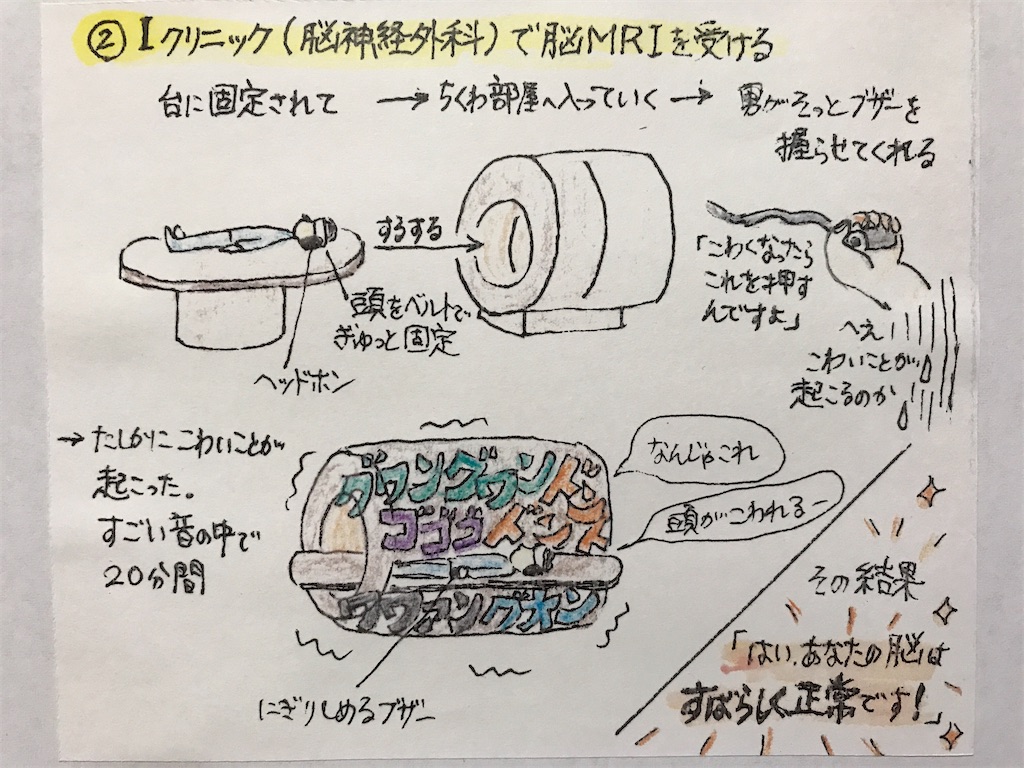 ② Iクリニック(脳神経外科)で脳MRIを受ける
台に固定されて → ちくわ部屋へ入っていく → 男がそっとブザーを
握らせてくれる
するする
頭をベルトで
ぎゅっと固定
ヘッドホン
「こわくなったら
これを押す
んですよ」
へえ
こわいことが
起こるのか
→ たしかにこわいことが
起こった。
すごい音の中で
20分間
ガワングワンドン
ゴゴゴドンス
ウウァングオン
なんじゃこれ
頭がこわれるー
にぎりしめるブザー
その結果
「はい、あなたの脳は
すばらしく正常です!」